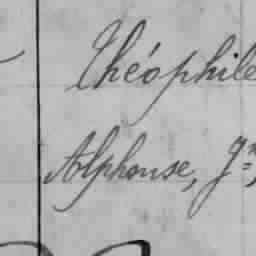 Théophile
Alphonse, Jn,